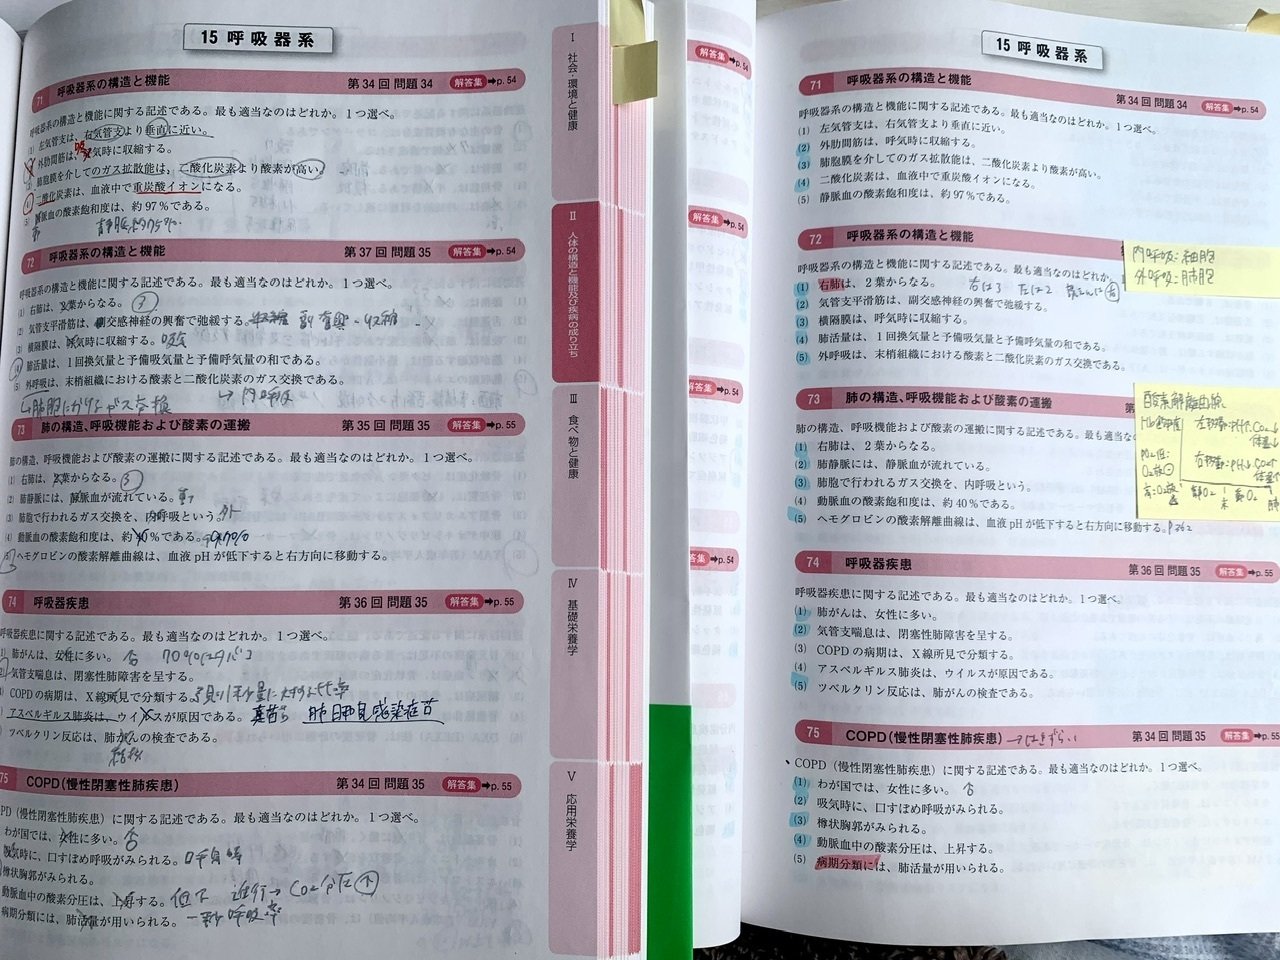 15 呼吸器系
71 呼吸器系の構造と機能 第34回 問題34 解答集 ➡p. 54
呼吸器系の構造と機能に関する記述である。最も適当なのはどれか。1つ選べ。
(1) 左気管支は、右気管支より垂直に近い。
外肋間筋は、呼気時に収縮する。
吸
肺胞膜を介してのガス拡散能は、二酸化炭素より酸素が高い。
二酸化炭素は、血液中で重炭酸イオンになる。
(5) 静脈血の酸素飽和度は、約97%である。
静脈約75%
72 呼吸器系の構造と機能 第37回 問題35 解答集 ➡p. 54
呼吸器系の構造と機能に関する記述である。最も適当なのはどれか。1つ選べ。
(1) 右肺は、2葉からなる。 3
(2) 気管支平滑筋は、副交感神経の興奮で弛緩する。 副交感-収縮
(3) 横隔膜は、呼気時に収縮する。 吸気
(4) 肺活量は、1回換気量と予備吸気量と予備呼気量の和である。
(5) 外呼吸は、末梢組織における酸素と二酸化炭素のガス交換である。
肺胞におけるガス交換 → 内呼吸
73 肺の構造、呼吸機能および酸素の運搬 第35回 問題35 解答集 ➡p. 55
肺の構造、呼吸機能および酸素の運搬に関する記述である。最も適当なのはどれか。1つ選べ。
(1) 右肺は、2葉からなる。 3
(2) 肺静脈には、静脈血が流れている。 動
(3) 肺胞で行われるガス交換を、内呼吸という。 外
(4) 動脈血の酸素飽和度は、約40%である。
ヘモグロビンの酸素解離曲線は、血液pHが低下すると右方向に移動する。
74 呼吸器疾患 第36回 問題35 解答集 ➡p. 55
呼吸器疾患に関する記述である。最も適当なのはどれか。1つ選べ。
肺がんは、女性に多い。 否 70%はタバコ
気管支喘息は、閉塞性肺障害を呈する。
COPDの病期は、X線所見で分類する。
アスペルギルス肺炎は、ウイルスが原因である。 真菌 肺日和見感染症
ツベルクリン反応は、肺がんの検査である。
結核
75 COPD(慢性閉塞性肺疾患) 第34回 問題35 解答集 ➡p. 55
PD(慢性閉塞性肺疾患)に関する記述である。最も適当なのはどれか。1つ選べ。
わが国では、女性に多い。 否
吸気時に、口すぼめ呼吸がみられる。 呼気時
樽状胸郭がみられる。
動脈血中の酸素分圧は、上昇する。 低下 進行→CO2分圧
病期分類には、肺活量が用いられる。 一秒
Ⅰ 社会・環境と健康
Ⅱ 人体の構造と機能及び疾病の成り立ち
Ⅲ 食べ物と健康
Ⅳ 基礎栄養学
Ⅴ 応用栄養学
解答集 ➡p. 54
解答集 ➡p. 54
解答集 ➡p. 54
解答集 ➡p. 54
15 呼吸器系
71 呼吸器系の構造と機能 第34回 問題34 解答集 ➡p. 54
呼吸器系の構造と機能に関する記述である。最も適当なのはどれか。1つ選べ。
(1) 左気管支は、右気管支より垂直に近い。
(2) 外肋間筋は、呼気時に収縮する。
(3) 肺胞膜を介してのガス拡散能は、二酸化炭素より酸素が高い。
(4) 二酸化炭素は、血液中で重炭酸イオンになる。
(5) 静脈血の酸素飽和度は、約97%である。
72 呼吸器系の構造と機能
呼吸器系の構造と機能に関する記述である。最も適当なのはどれか
(1) 右肺は、2葉からなる。 右は3 左は2
(2) 気管支平滑筋は、副交感神経の興奮で弛緩する。
(3) 横隔膜は、呼気時に収縮する。
(4) 肺活量は、1回換気量と予備吸気量と予備呼気量の和である。
(5) 外呼吸は、末梢組織における酸素と二酸化炭素のガス交換である。
内呼吸:細胞
外呼吸:肺胞
73 肺の構造、呼吸機能および酸素の運搬
肺の構造、呼吸機能および酸素の運搬に関する記述である。最も適当な
(1) 右肺は、2葉からなる。
(2) 肺静脈には、静脈血が流れている。
(3) 肺胞で行われるガス交換を、内呼吸という。
(4) 動脈血の酸素飽和度は、約40%である。
(5) ヘモグロビンの酸素解離曲線は、血液pHが低下すると右方向に移動する。 P262
酸素解離曲線
左移動:pH↑ CO2↓
体温↓
右移動:pH↓ CO2↑
体温↑
74 呼吸器疾患 第36回 問題35 解答集 ➡p. 55
呼吸器疾患に関する記述である。最も適当なのはどれか。1つ選べ。
(1) 肺がんは、女性に多い。
(2) 気管支喘息は、閉塞性肺障害を呈する。
(3) COPDの病期は、X線所見で分類する。
(4) アスペルギルス肺炎は、ウイルスが原因である。
(5) ツベルクリン反応は、肺がんの検査である。
75 COPD(慢性閉塞性肺疾患) 第34回 問題35 解答集 ➡p. 55
COPD(慢性閉塞性肺疾患)に関する記述である。最も適当なのはどれか。1つ選べ。
(1) わが国では、女性に多い。 否
(2) 吸気時に、口すぼめ呼吸がみられる。
(3) 樽状胸郭がみられる。
(4) 動脈血中の酸素分圧は、上昇する。
(5) 病期分類には、肺活量が用いられる。